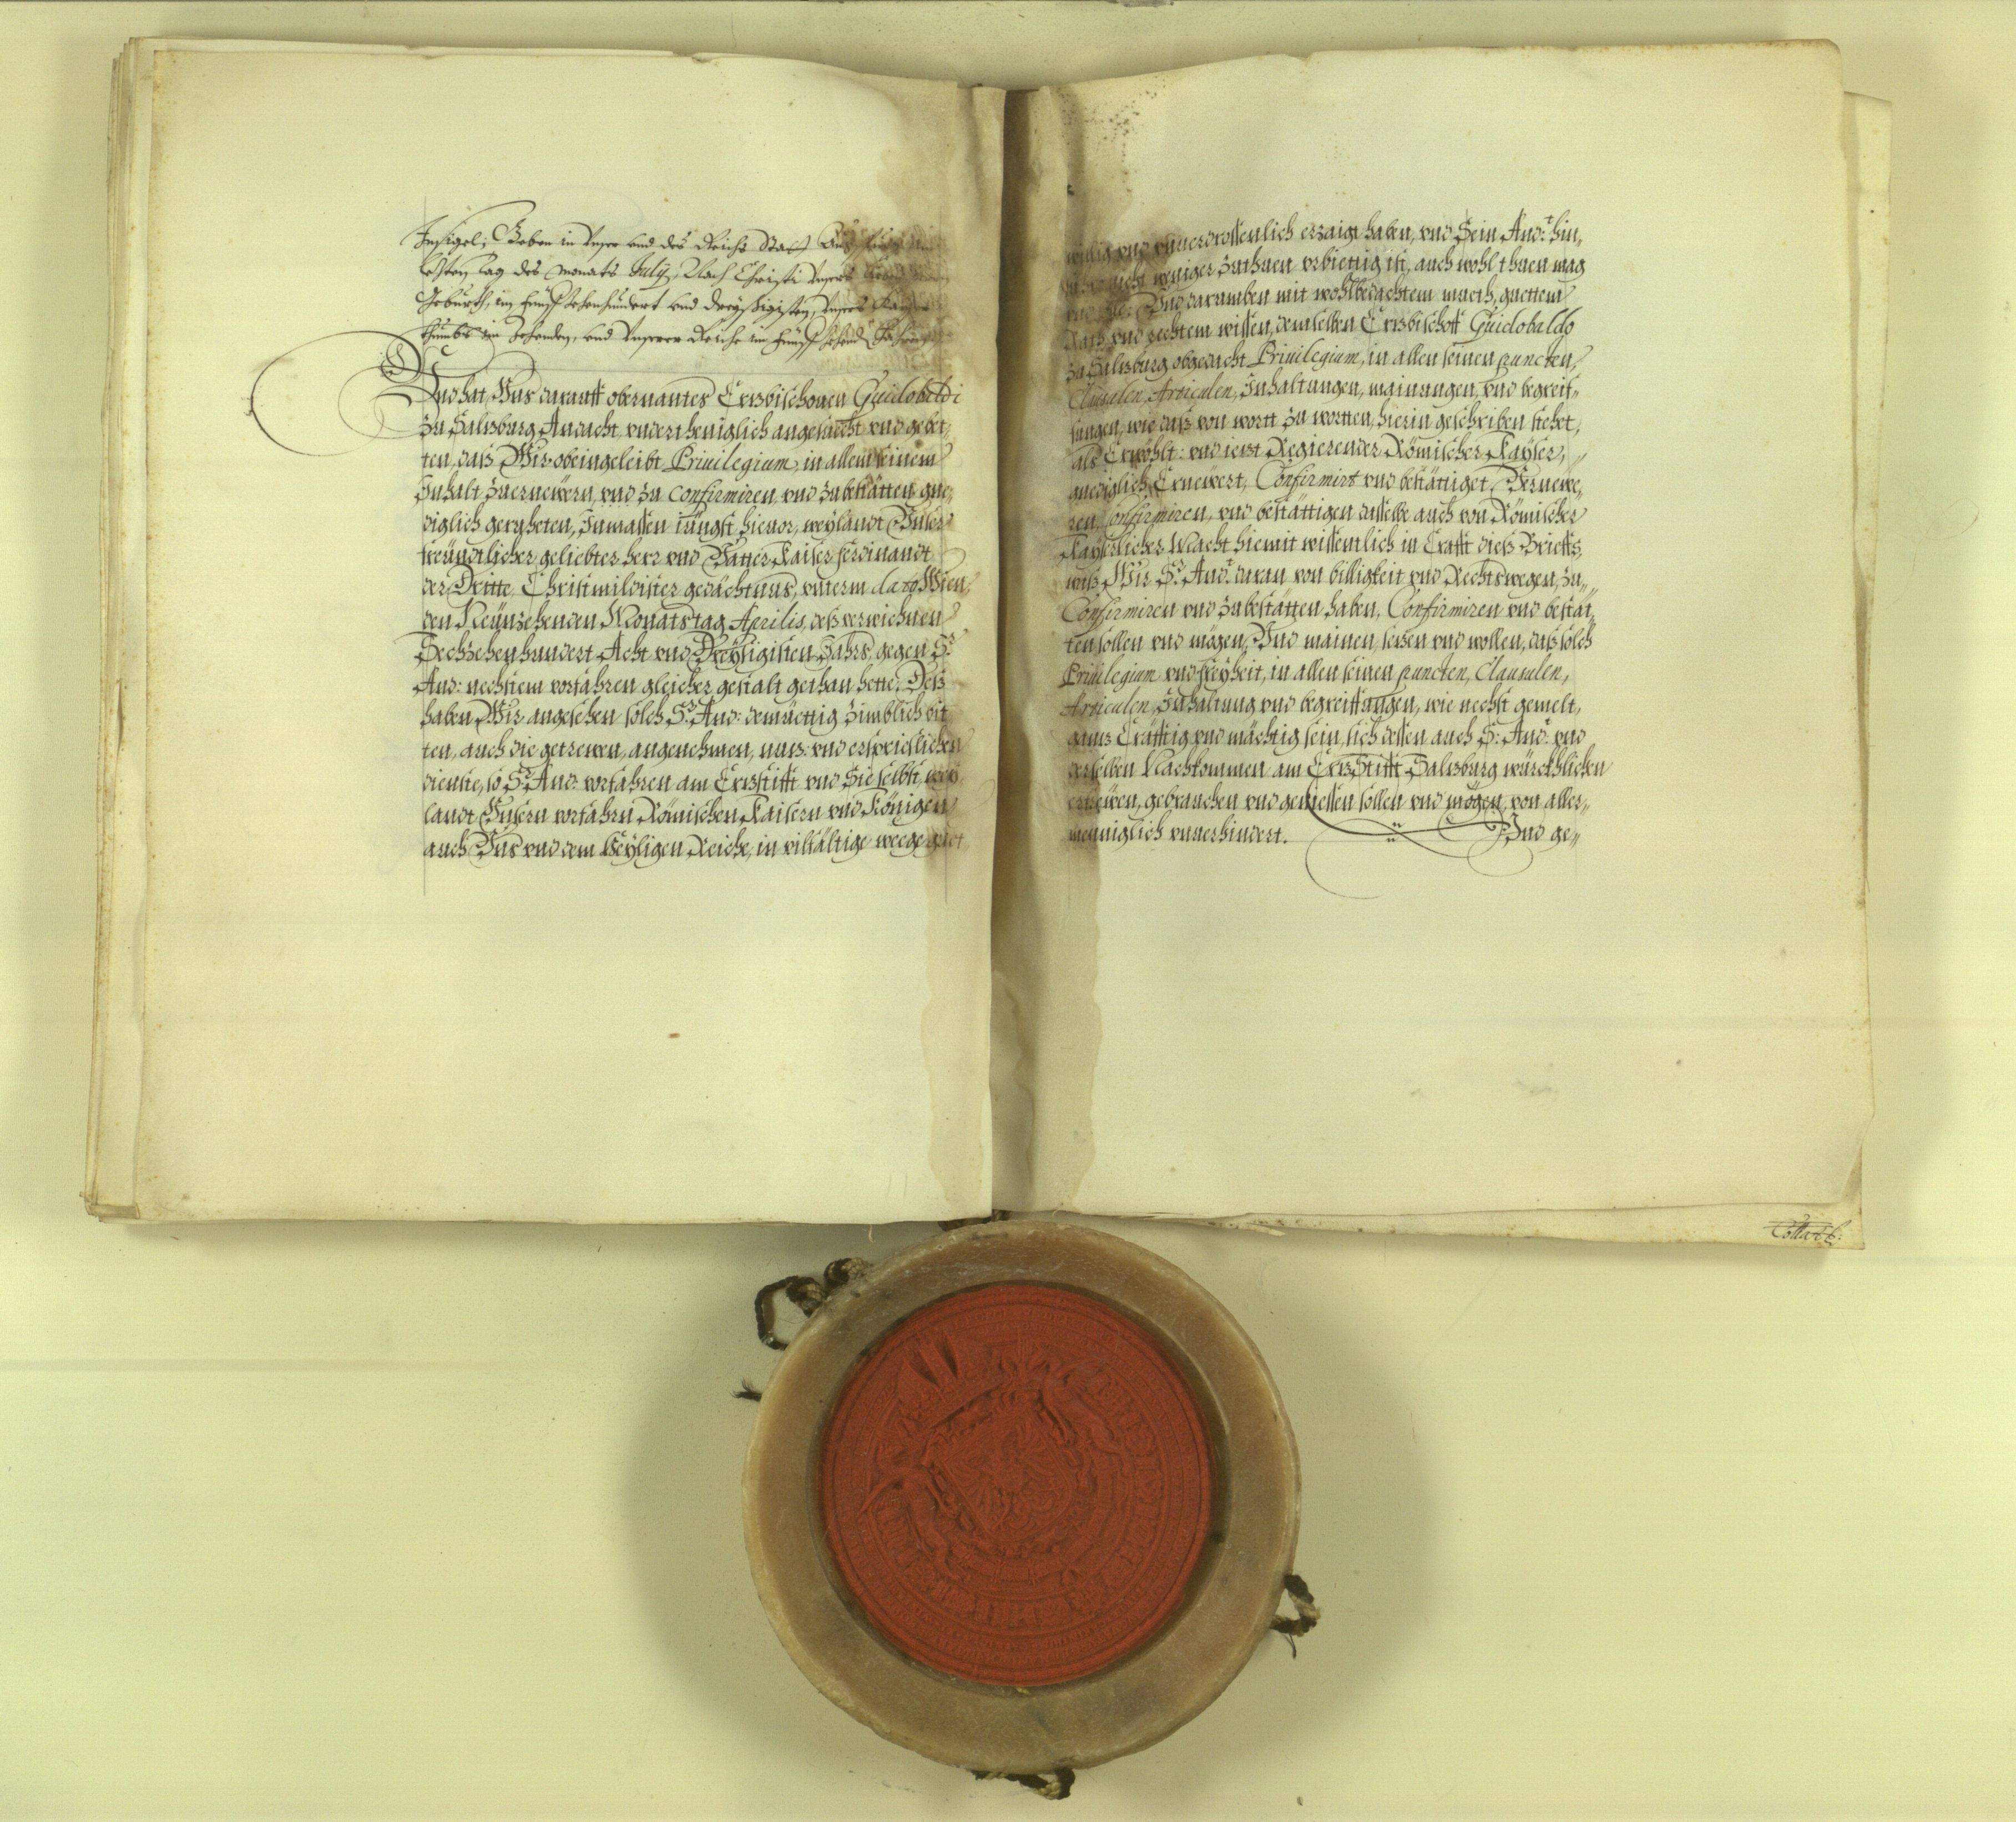 Insigel; Geben in Unser und des Reichs Statt
lesten tag des monats Julij, Nach Christi Unsers
Geburth, im funfzehenhundert und dreyssigisten, Unsers
thumbs im zehenden, und Unserer Reiche im funfzehend
Und hat Uns darauff obernantes Ertzbischouen Guidobaldi
zu Saltzburg Andacht, undertheniglich angesucht und gebet,
ten, daß Wir obeingeleibt Priuilegium, in allem seinem
Inhalt zuernewern, vnd zu confirmiren, vnd zubestätten gne,
diglich geruheten, Inmassen iüngst hieuor, weylandt Vnser
freündtlicher geliebter herr vnd Vatter Kaiser Ferdinandt
der Dritte, Christmildister gedächtnus, vnterm dato Wien,
den Neünzehenden Monatstag Aprilis, deß verwichnen
Sechzehenhundert Acht vnd Dreyßigisten Jahrs, gegen Sr
And: nechstem vorfahren gleicher gestalt gethan hette. Deß
haben Wir angesehen solch Sr And: demüettig zimblich bit
ten, auch die getrewen, angenehmen, nutz: vnd ersprieslichen
dienste, so Sr And: vorfahren am Ertzstifft vnd Sie selbst, wey
landt Vnsern vorfahrn Römischen Kaisern vnd Königen
auch Vns vnd dem Heyligen Reiche, in vilfältige weege guet
willig vnd vnuerdrossenlich erzaigt haben, vnd Sein And:t hin,
nicht weniger zuthuen vrbiettig ist, auch wohl thuen mag
Vnd darumben mit wohlbedachtem mueth, guettem
Rath vnd rechtem wissen, demselben Ertzbischoff Guidobaldo
zu Saltzburg obgedacht Priuilegium, in allen seinen puncten,
Clausulen, Articulen, Inhaltungen, mainungen, vnd begreif,
fungen, wie daß von wortt zu wortten, hierin geschriben stehet,
als Erwöhlt: vnd ietzt Regierender Römischer Kayser,
gnediglich Ernewert, Confirmirt vnd bestättiget, Vernewe,
ren, Confirmiren, vnd bestättigen dasselbe auch von Römischer
Kayserlicher Macht hiemit wissentlich in Crafft dieß Brieffs,
waß Wir Sr And:t daran von billigkeit vnd Rechtswegen, zu,,
Confirmiren vnd zubestätten haben, Confirmiren vnd bestät,,
ten sollen vnd mögen, Vnd mainen, setzen vnd wollen, daß solch
Priuilegium vnd freyheit, in allen seinen puncten, Clausulen,
Articulen, Inhaltung vnd begreiffungen, wie nechst gemelt,
gantz Cräfftig vnd mächtig sein, sich dessen auch S: And:t vnd
derselben Nachkommen am Ertz Stifft Saltzburg würcklichen
erfrewen, gebrauchen vnd geniessen sollen vnd mögen, von aller,,
menniglich vnuerhindert. Vnd ge,,
Collat